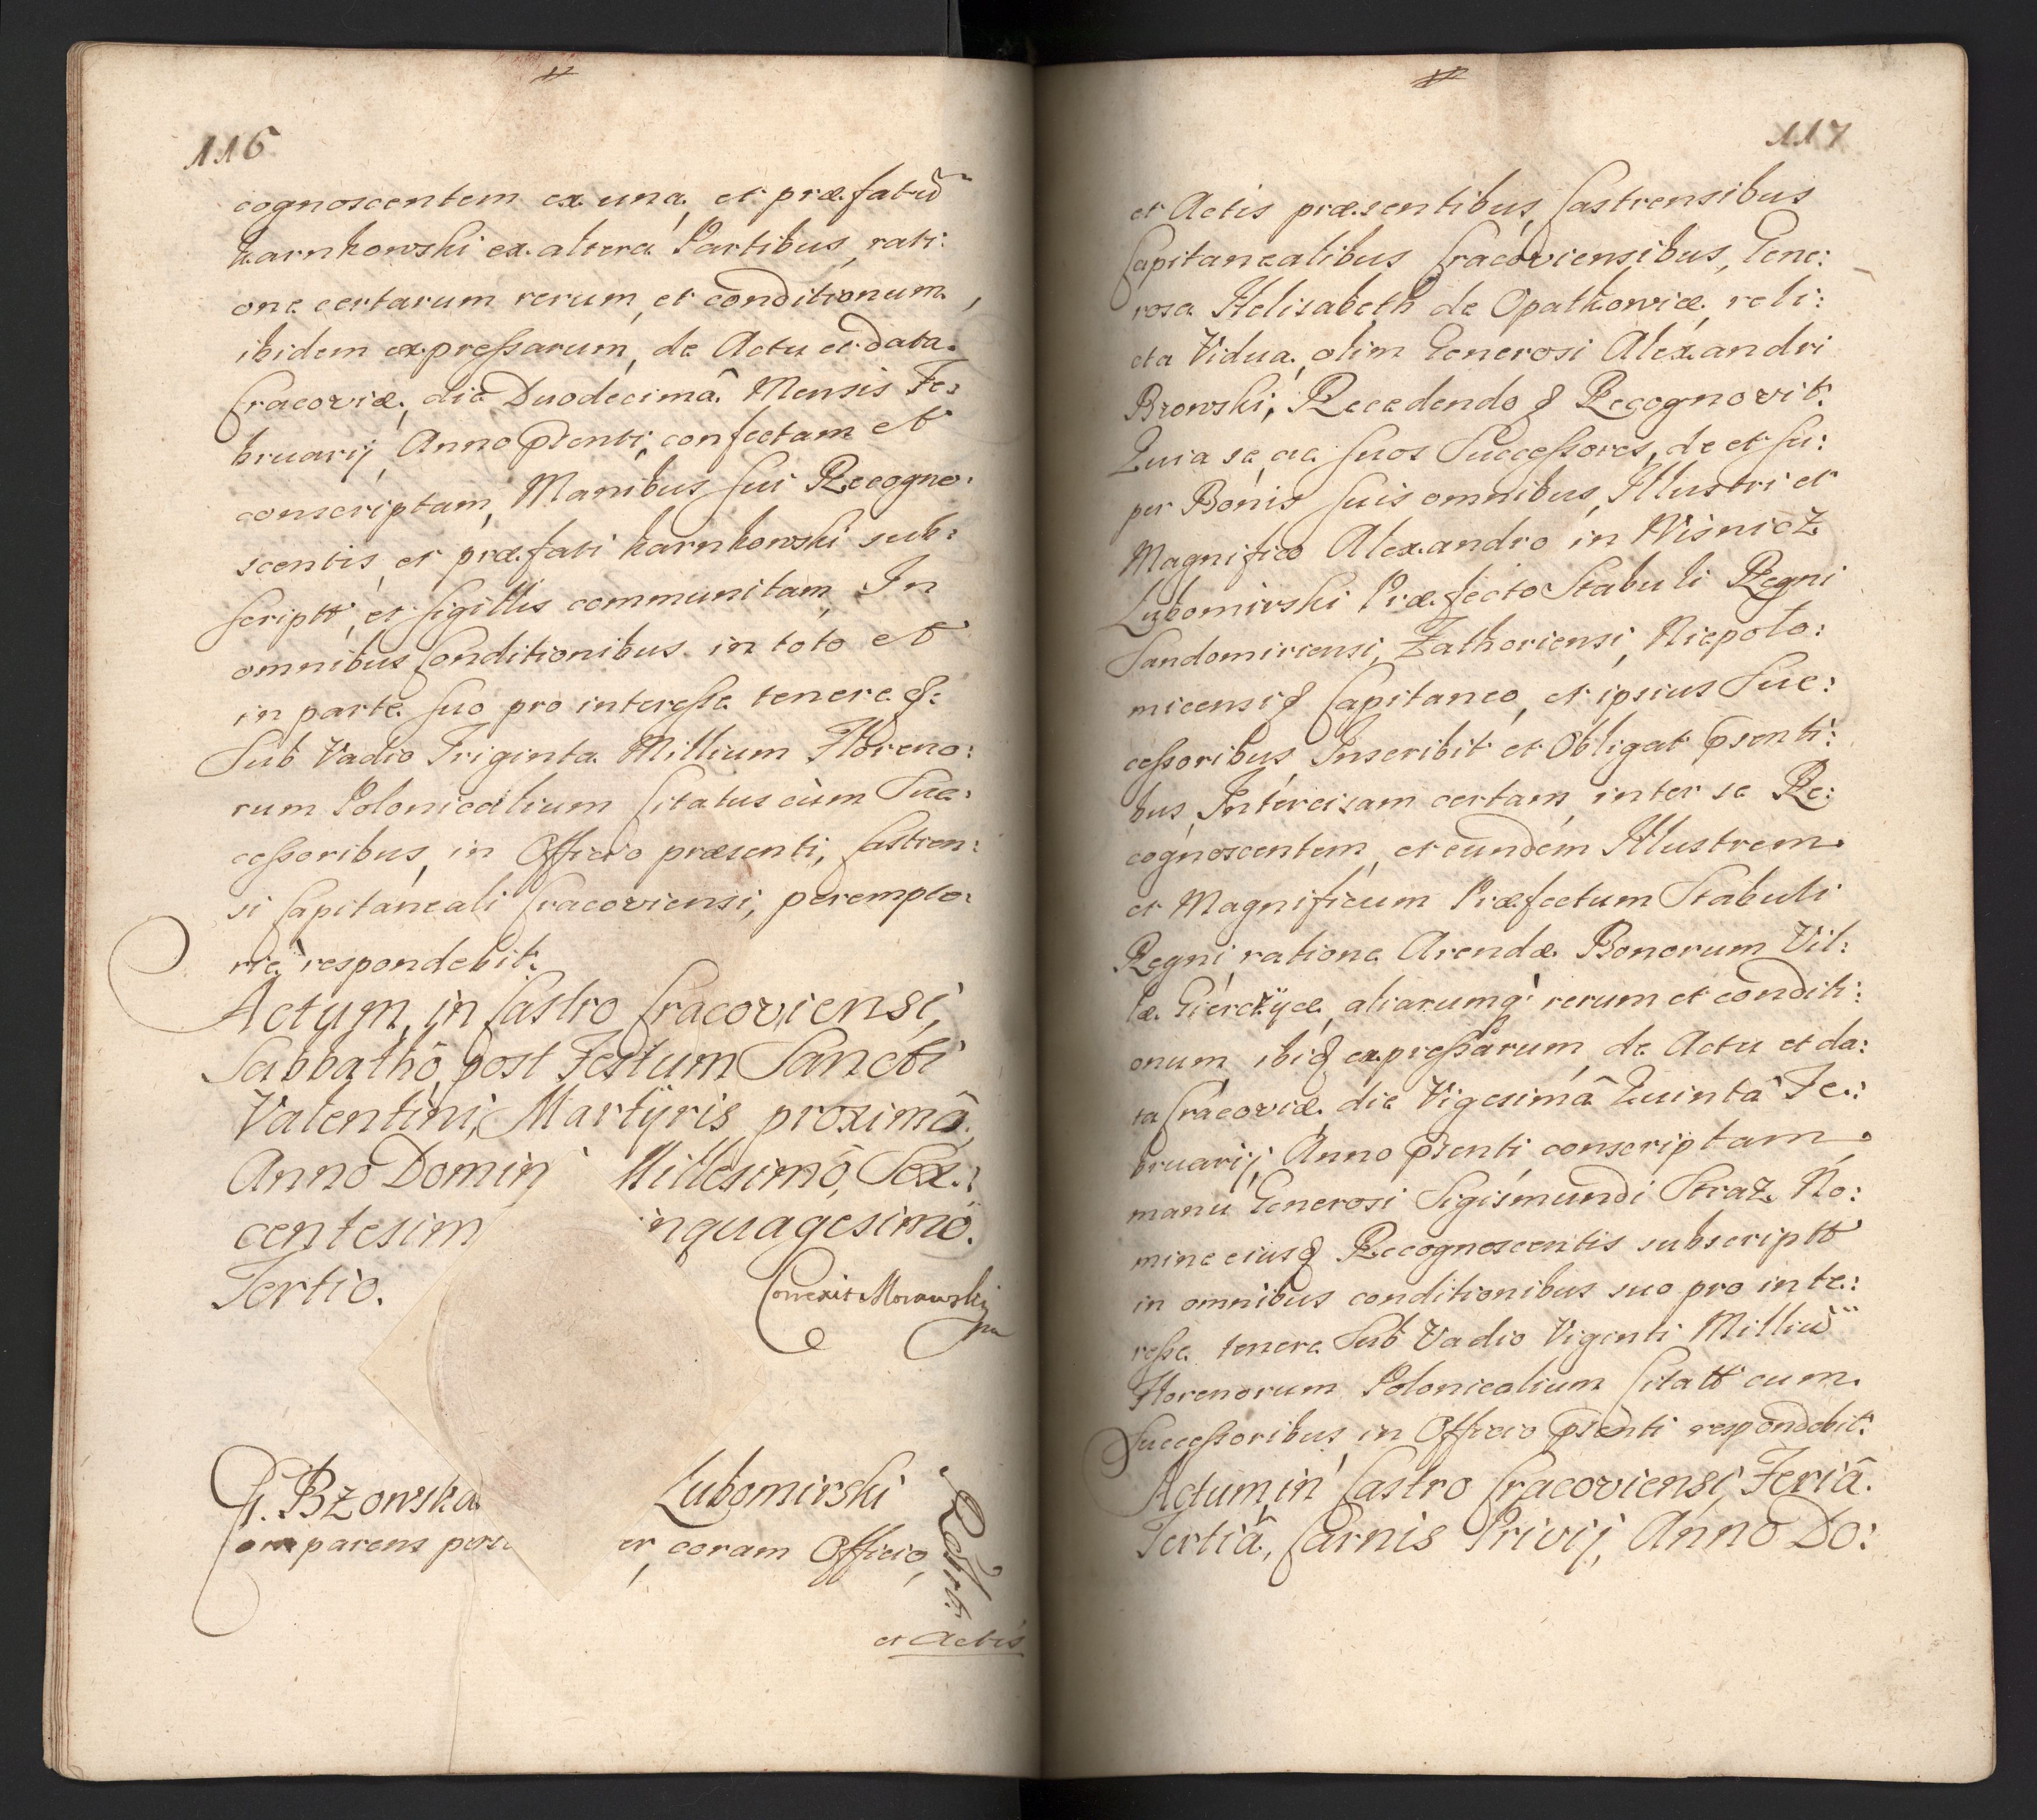 116
cognoscentem ex una, et præfatũ
Karnkowski ex altera Partibus, rati:
one certarum rerum, et conditionum,
ibidem expressarum, de Actu et data
Cracoviæ, die Duodecimâ Mensis Fe:
bruarij Anno pŝenti, confectam et
conscriptam, Manibus sui Recogno:
scentis, et præfati Karnkowski sub:
scriptt, et sigillis communitam, In
omnibus Conditionibus in toto et
in parte suo pro interesse tenere &:
Sub Vadio Triginta Millium Floreno:
rum Polonicalium Citatus cum Suc:
cessoribus, in Officio præsenti, Castren:
si Capitaneali Cracoviensi, perempto:
rie respondebit.
Actum in Castro Cracoviensi,
Sabbathô post Festum Sancti
Valentini, Martÿris proximô,
Anno Domin Millesimô, Sex:
centesim inquagesimô.
Tertio.
Correxit Morawski
mp
G. Bzowska Lubomirski Robrt.
Comparens perso er, coram Officio,
et Actis
117
et Actis præsentibus, Castrensibus
Capitanealibus Cracoviensibus, Gene:
rosa Helisabeth de Opatkowice, reli:
cta Vidua, olim Generosi Alexandri
Bzowski, Recedendo & Recognovit.
Quia se, ac suos Successores, de et su:
per Bonis suis omnibus, Illustri et
Magnifico Alexandro in Wisnicz
Lubomirski Præfecto Stabuli Regni
Sandomiriensi, Zathoriensi, Niepoło:
micensi& Capitaneo, et ipsius Suc:
cessoribus Inscribit et Obligat pŝenti:
bus, Intercisam certam, inter se Re:
cognoscentem, et eundem Illustrem
et Magnificum Præfectum Stabuli
Regni ratione Arendæ Bonorum Vil:
læ Gierczÿce, aliarumq; rerum et conditi:
onum ibi& expressarum, de Actu et da:
ta Cracoviæ die Vigesimâ Quintâ Fe:
bruarij, Anno pŝenti conscriptam,
manu Generosi Sigismundi Straz No:
mine eius& Recognoscentis subscriptt
in omnibus conditionibus suo pro inte:
resse tenere Sub Vadio Viginti Milliũ
Florenorum Polonicalium Citatt cum
Successoribus in Officio pŝenti respondebit.
Actum in Castro Cracoviensi, Feriâ
Tertiâ, Carnis Privij, Anno Do: